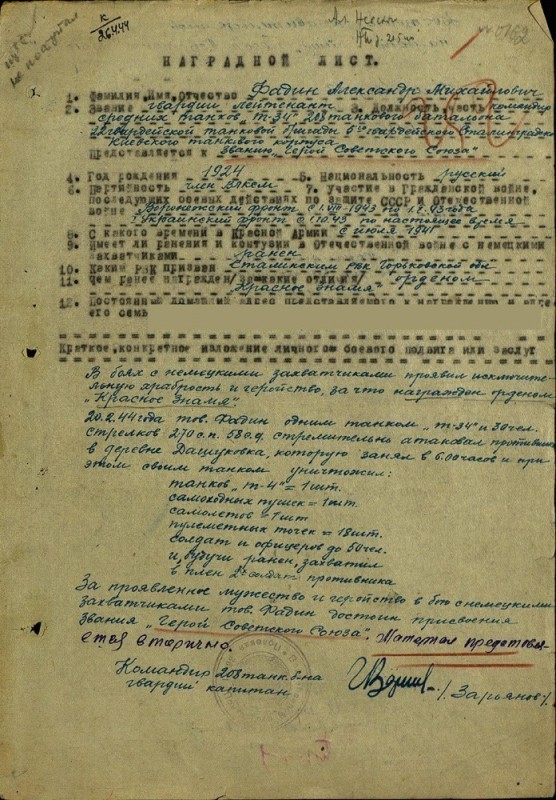 к
26444
Ал. Невск
№0162
НАГРАДНОЙ ЛИСТ.
1. Фамилия, Имя, Отчество Фадин Александр Михайлович
2. Звание гвардии лейтенант 3. Должность, часть командир
средних танков "Т-34" 208 танкового батальона
22 гвардейской танковой бригады 5го гвардейского Сталинградско
Киевского танкового корпуса
Представляется к званию "Герой Советского Союза"
4. Год рождения 1924 5. Национальность русский
6. Партийность член ВЛКСМ 7. участие в Гражданской войне,
последующих боевых действиях по защите СССР и Отечественной
войне Воронежский фронт с 1.VIII-1943 по 1.X.43 года
1 Украинский фронт с 1.10.43 по настоящее время
8. С какого времени в Красной Армии с июля 1941
9. Имеет ли ранения и контузии в Отечественной войне с немецкими
захватчиками. ранен
10. Каким РВК призван Сталинским РВК Горьковской обл
11. Чем ранее награжден /за какие отличия/ орденом
"Красное Знамя"
12. Постоянный домашний адрес представляемого к награждению и адрес
его семь
Краткое, конкретное изложение личного боевого подвига или заслуг
В боях с немецкими захватчиками проявил исключите-
льную храбрость и геройство, за что награжден орденом
"Красное Знамя"
20.2.44 года тов. Фадин одним танком "Т-34" и 30 чел.
стрелков 270 с.п. 58 с.д. стремительно атаковал противника
в деревне Дашуковка, которую занял в 6.00 часов и при
этом своим танком уничтожил:
танков "Т-4" = 1 шт.
самоходных пушек = 1 шт.
самолетов = 1 шт
пулеметных точек = 18 шт.
солдат и офицеров до 50 чел.
и, будучи ранен, захватил
в плен 2х солдат противника
За проявленное мужество и геройство в бою с немецкими
захватчиками тов. Фадин достоин присвоения
звания "Герой Советского Союза". Материал представля-
ется вторично.
Командир 208 танк. б-на
гвардии капитан /Зароянов/.